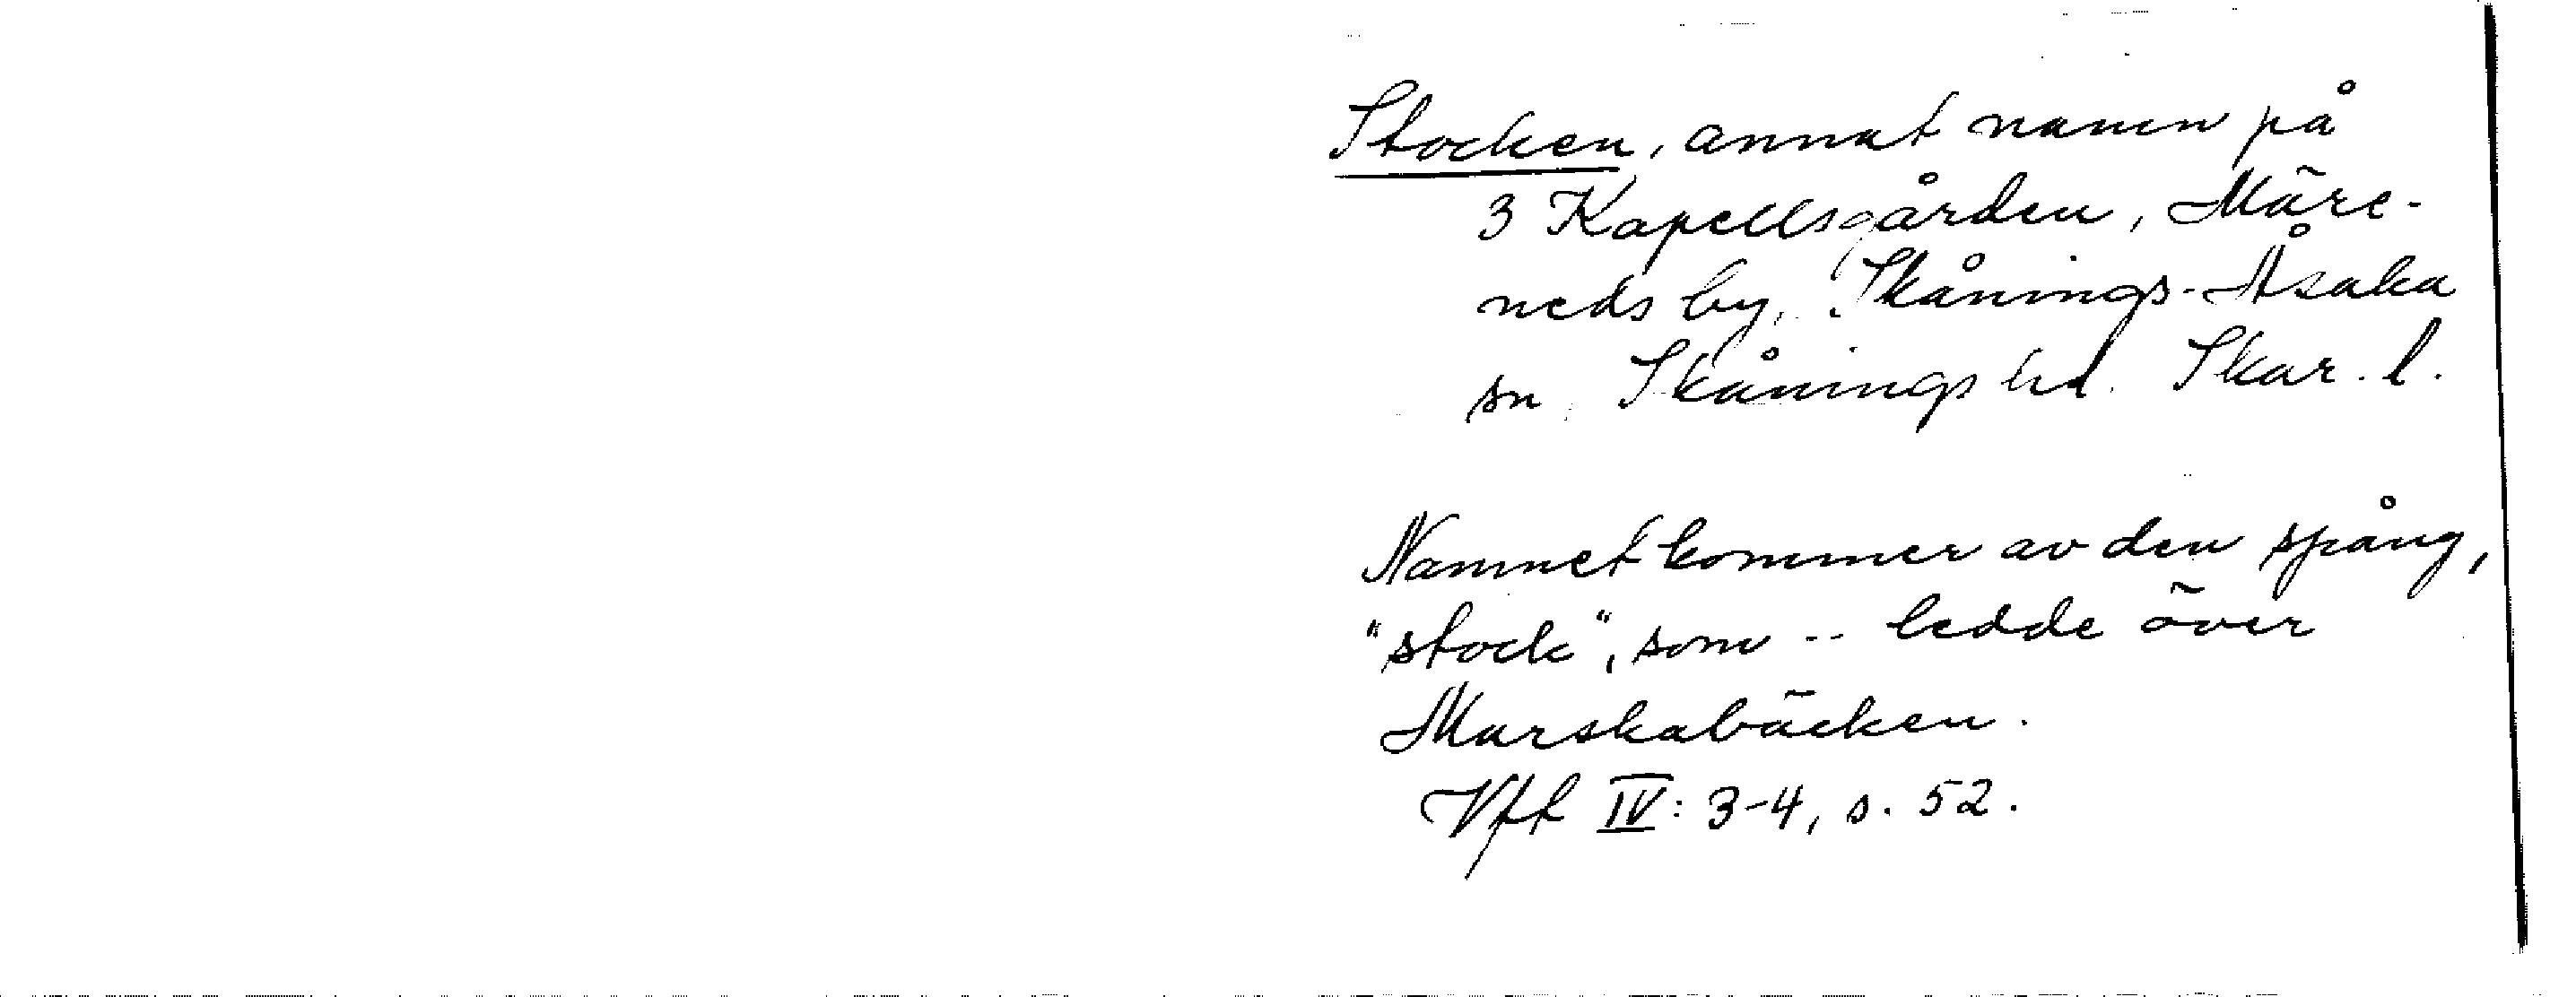 Stocken, annat namn på
3 Kapellsgården, Märe-
neds by, Skånings-Åsaka
sn, Skånings hd. Skar. l.
Namnet kommer av den spång,
"stock", som -- ledde över
Marskabäcken.
Vft IV: 3-4, s. 52.